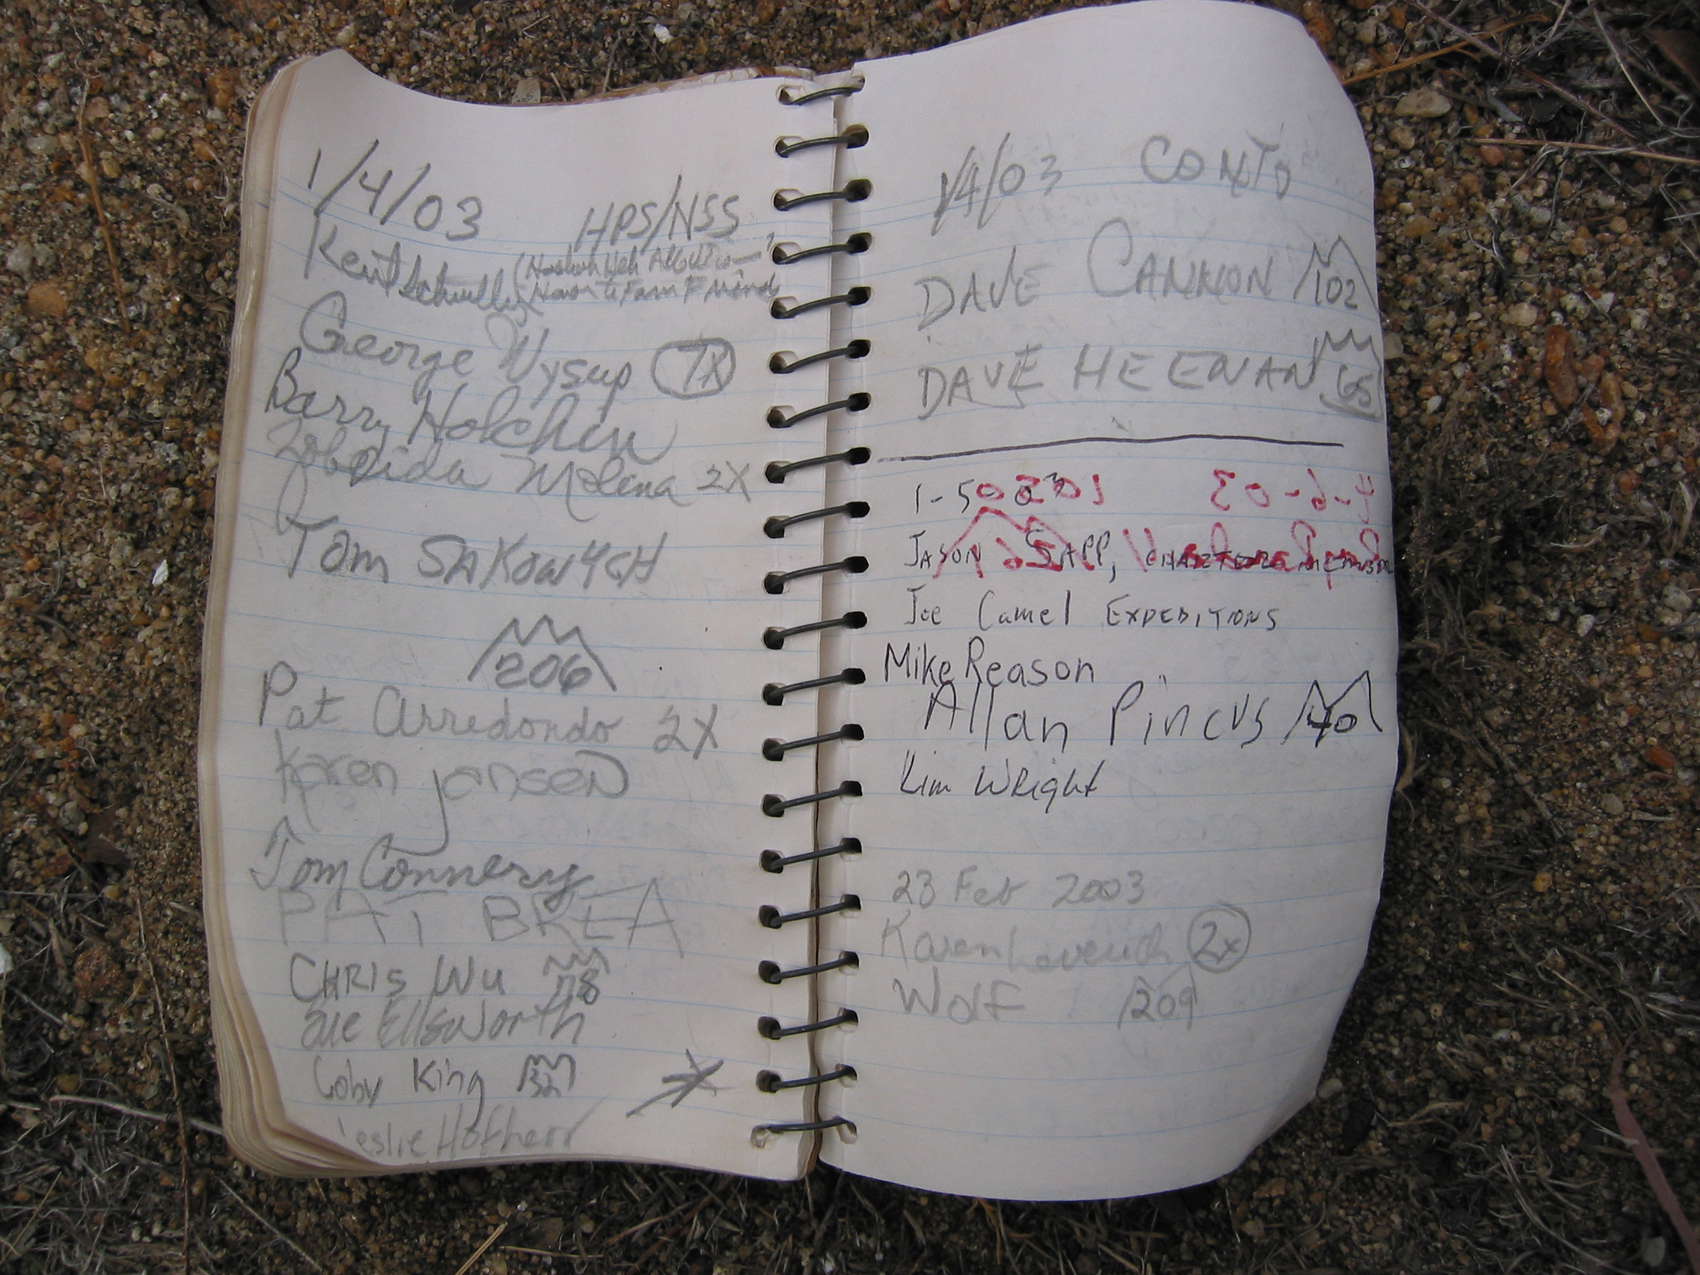 1/4/03
HPS/NSS
Kent Schwitkis
George Wysup 7X
Barry Holchin
Zobeida Molina 2X
Tom SAKOWYCH
206
Pat Arredondo 2X
Karen jansen
Tom Connery
PAT BREA
CHRIS WU 78
Sue Ellsworth
Coby King 32
Leslie Hofherr
1/4/03 CONTD
DAVE CANNON 102
DAVE HEENAN 65
1-5-03
JASON SAPP, CHARTER MEMBER
Joe Camel EXPEDITIONS
Mike Reason
Allan Pincus 40
Kim Wright
23 Feb 2003
Karen Leverich 2x
Wolf 209